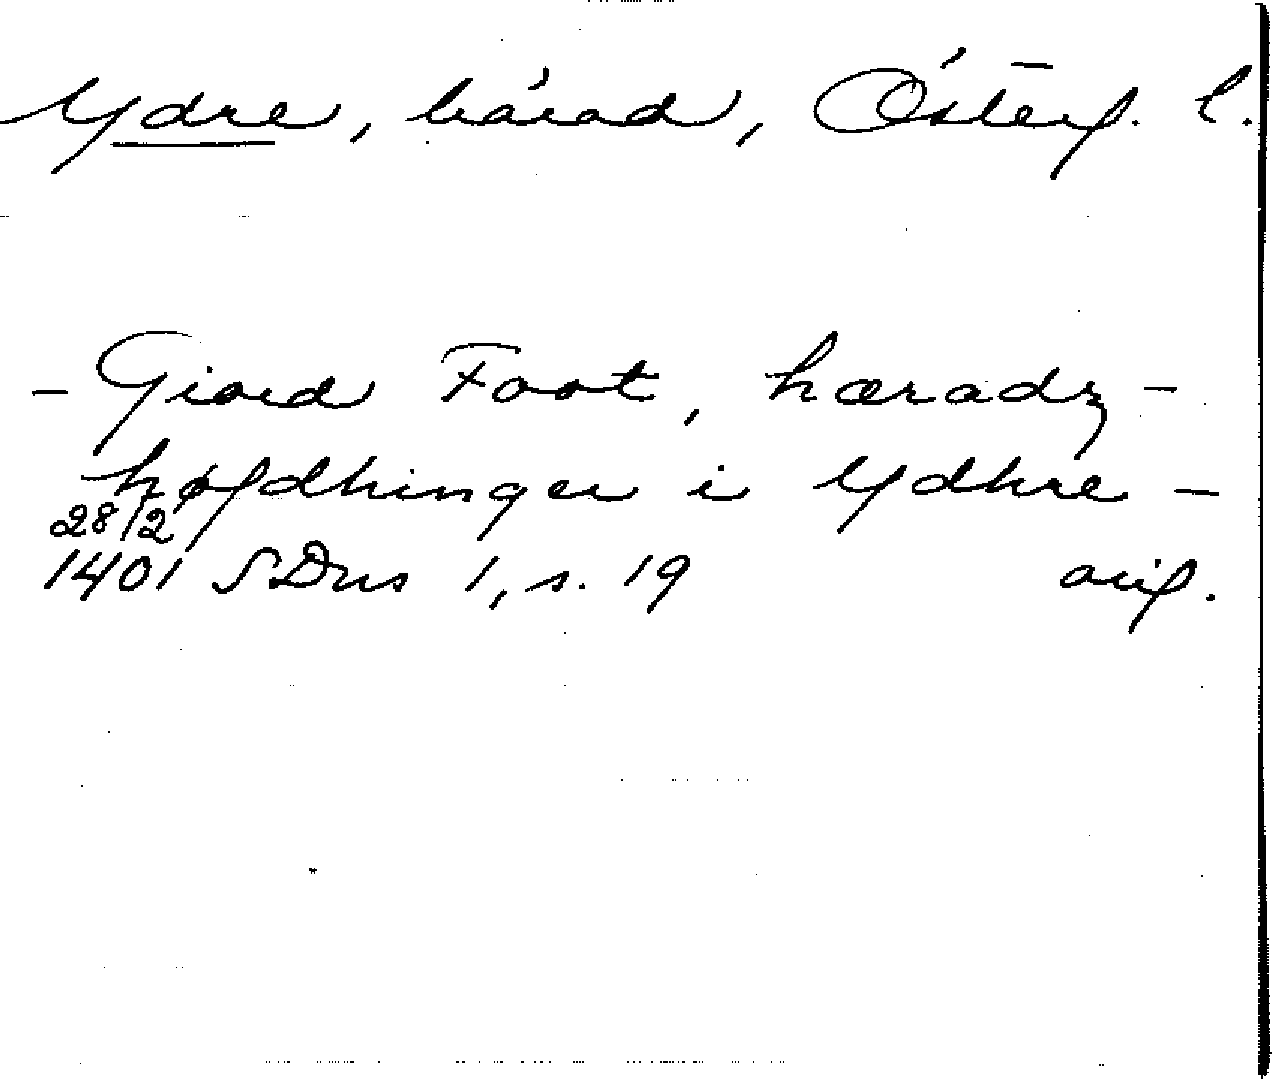 Ydre, härad, Österg. l.
- Giord Foot, hæradz -
høfdhinger i Ydhre -
28/2
1401 SDns 1, s. 19 orig.